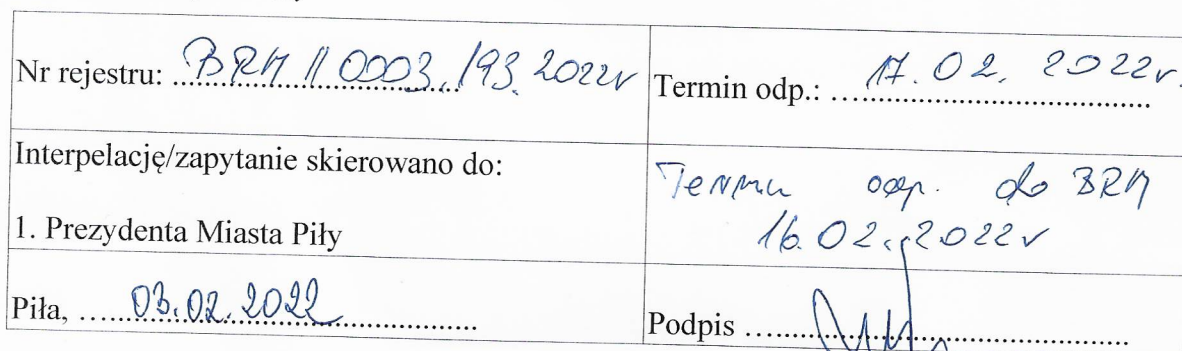 Nr rejestru: BRM II 0003.193.2022r
Termin odp.: 17.02.2022r.
Interpelację/zapytanie skierowano do:
1. Prezydenta Miasta Piły
Termin odp. do BRM
16.02.2022r
Piła, 03.02.2022
Podpis